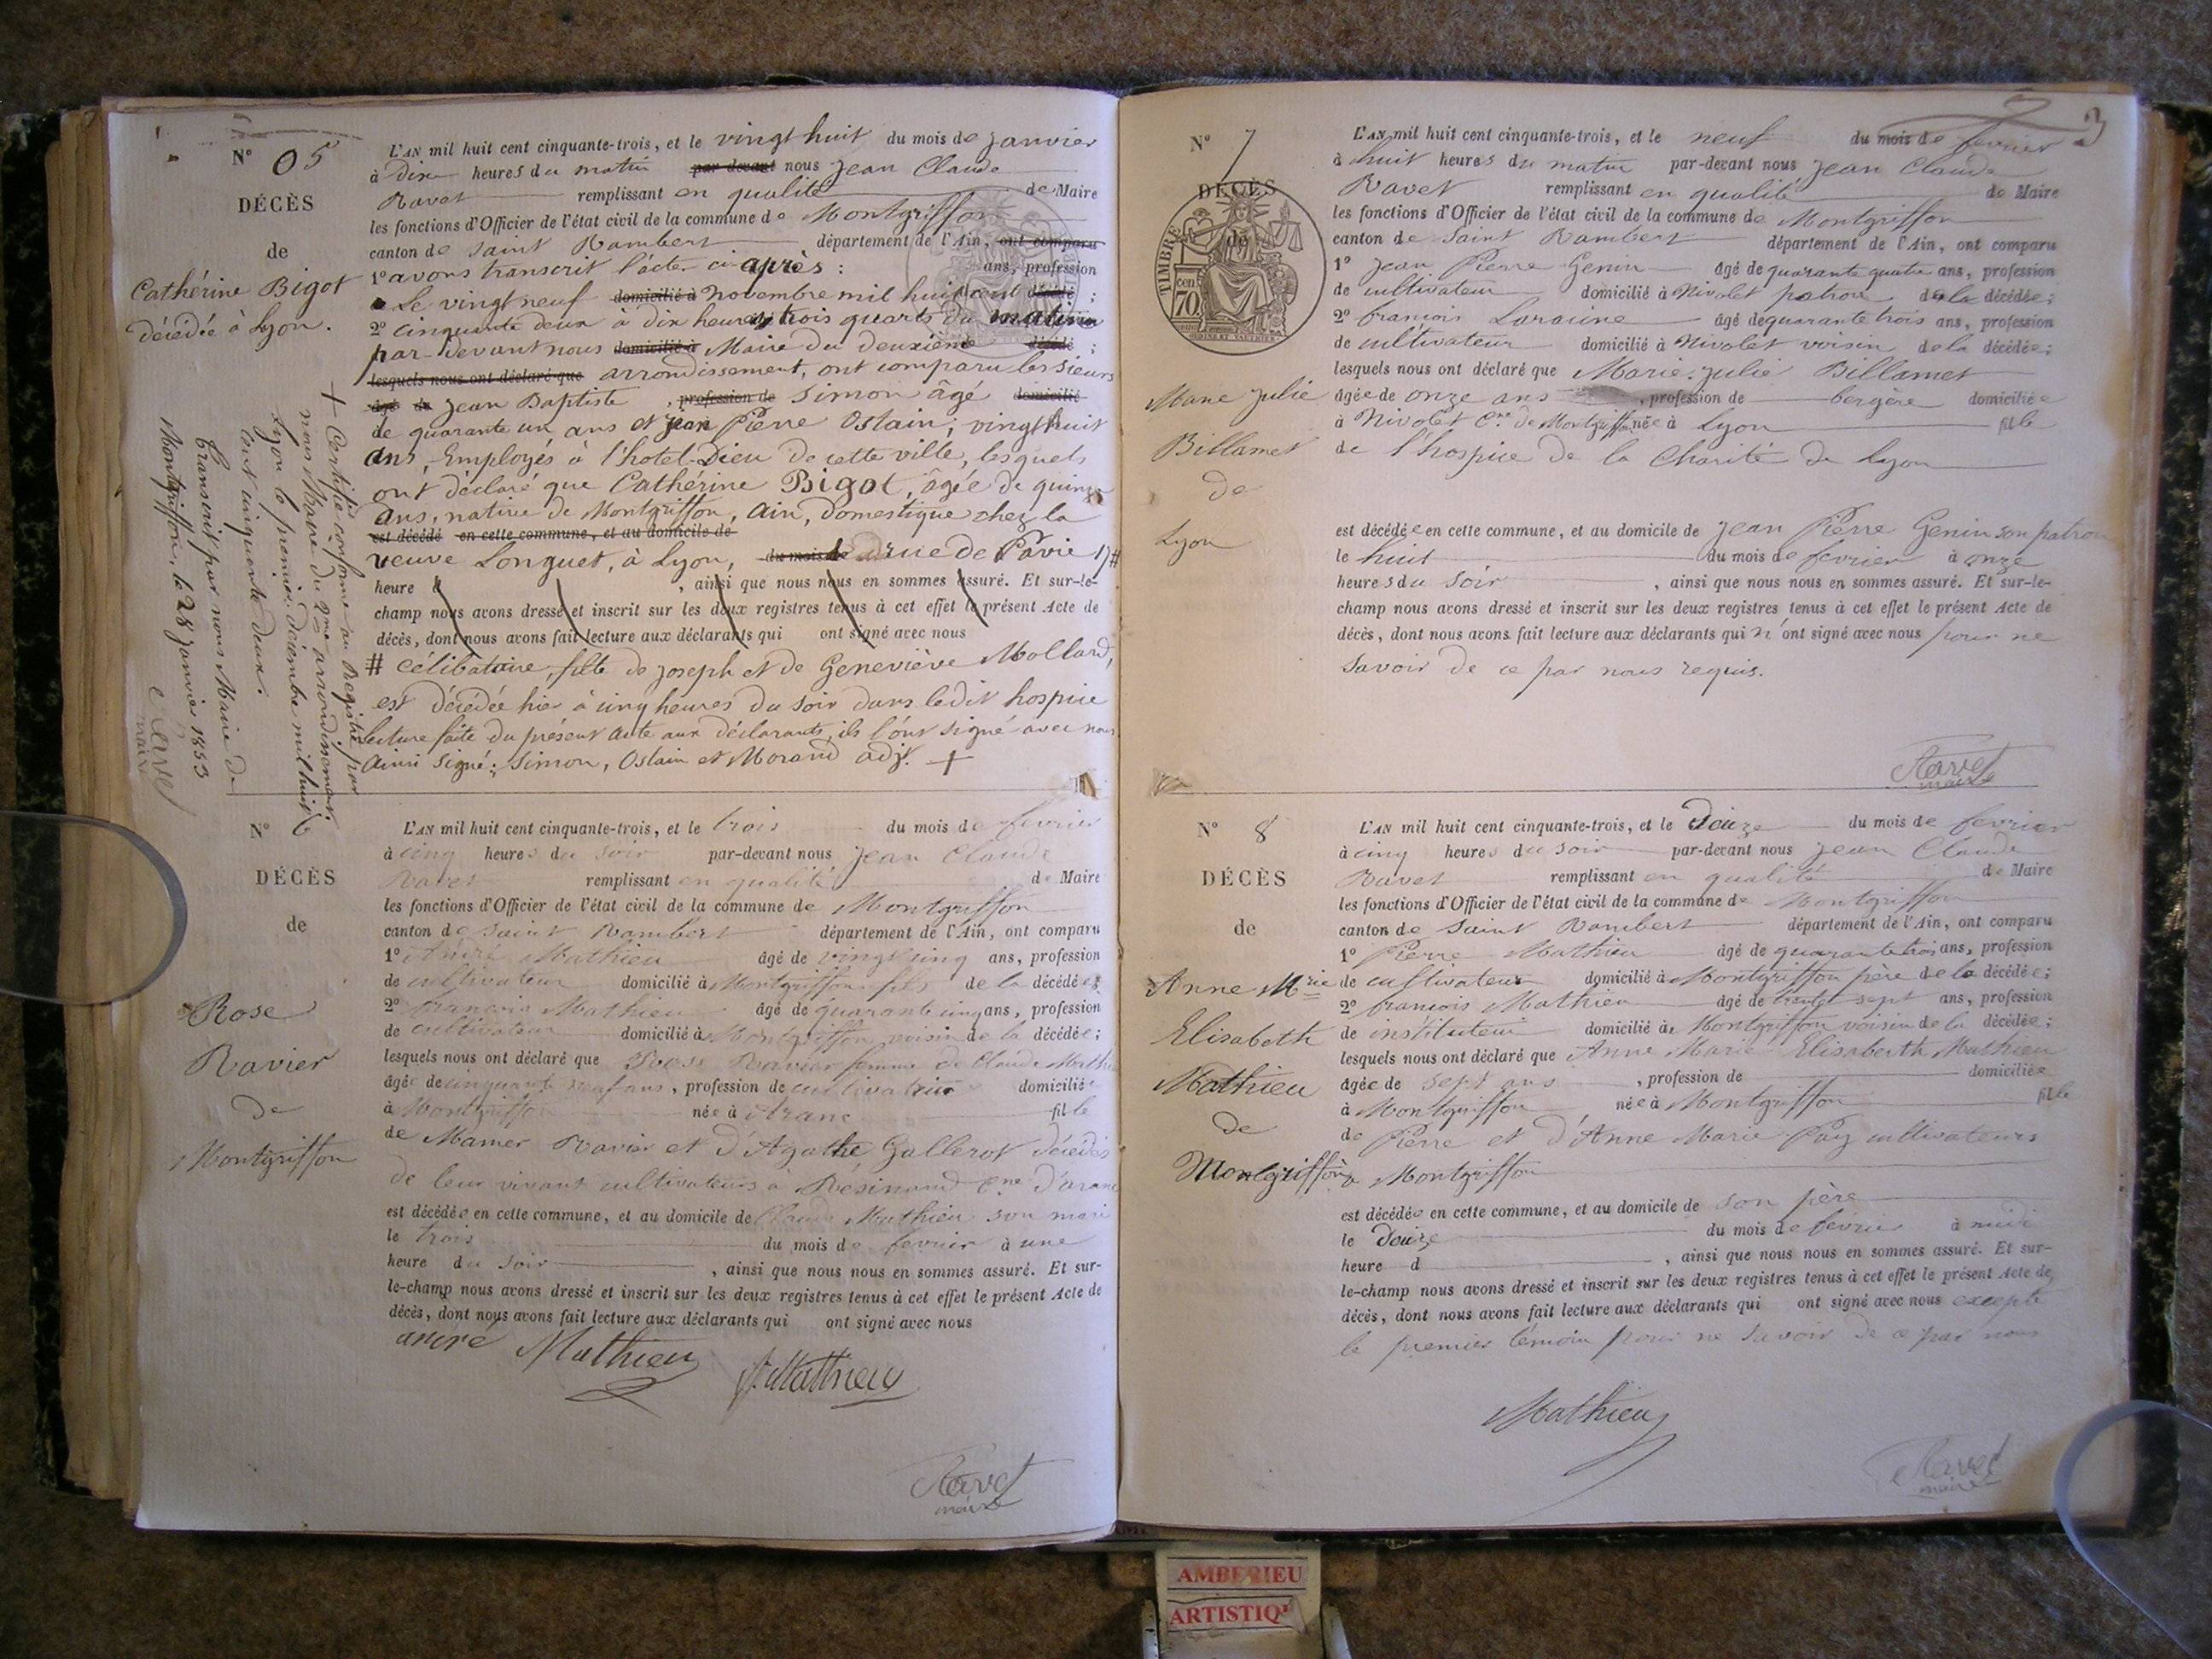 N° 05
DÉCÈS
de
Cathérine Bigot
décédée à Lyon.
L'AN mil huit cent cinquante-trois, et le vingt huit du mois de janvier
à dix heures du matin par-devant nous Jean Claude
Ravet remplissant en qualité de Maire
les fonctions d'Officier de l'état civil de la commune de Montgriffon
canton de Saint Rambert département de l'Ain, ont comparu
1° avons transcrit l'acte ci après : ans, profession
Le vingt neuf domicilié à novembre mil huit cent décédé ;
2° cinquante deux à dix heures trois quarts du matin
par-devant nous domicilié à Maire du deuxième décédé ;
lesquels nous ont déclaré que arrondissement, ont comparu les sieurs
âgé de Jean Baptiste , profession de Simon âgé domicilié
de quarante un ans et Jean Pierre Ostain, vingt huit
ans, Employés à l'hotel-Dieu de cette ville, lesquels
ont déclaré que Cathérine Bigot, âgée de quinze
ans, native de Montgriffon, Ain, domestique chez la
est décédé en cette commune, et au domicile de
veuve Longuet, à Lyon, du mois de rue de Pavie 17 #
heure d , ainsi que nous nous en sommes assuré. Et sur-le-
champ nous avons dressé et inscrit sur les deux registres tenus à cet effet le présent Acte de
décès, dont nous avons fait lecture aux déclarants qui ont signé avec nous
# célibataire, fille de Joseph et de Geneviève Mollard,
est décédée hier à cinq heures du soir dans ledit hospice
lecture faite du présent acte aux déclarants, ils l'ont signé avec nous
Ainsi signé : Simon, Ostain et Morand adjt. +
+ Certifié conforme au Registre par
nous Maire du 2me arrondissement
Lyon le premier décembre mil huit
cent cinquante deux.
Transcrit par nous Maire de
Montgriffon, le 28 janvier 1853
Ravet
maire
N° 6
DÉCÈS
de
Rose
Ravier
de
Montgriffon
L'AN mil huit cent cinquante-trois, et le trois du mois de fevrier
à cinq heures du soir par-devant nous Jean Claude
Ravet remplissant en qualité de Maire
les fonctions d'Officier de l'état civil de la commune de Montgriffon
canton de Saint Rambert département de l'Ain, ont comparu
1° André Mathieu âgé de vingt cinq ans, profession
de cultivateur domicilié à Montgriffon fils de la décédée ;
2° françois Mathieu âgé de quarante cinq ans, profession
de cultivateur domicilié à Montgriffon voisin de la décédée ;
lesquels nous ont déclaré que Rose Ravier femme de Claude Mathieu
âgée de cinquante neuf ans, profession de cultivatrice domiciliée
à Montgriffon née à Aranc fille
de Mamer Ravier et d'Agathe Gallerot décédés
de leur vivant cultivateurs à Résinand Cne d'aranc
est décédée en cette commune, et au domicile de Claude Mathieu son mari
le trois du mois de fevrier à une
heure du soir , ainsi que nous nous en sommes assuré. Et sur-
le-champ nous avons dressé et inscrit sur les deux registres tenus à cet effet le présent Acte de
décès, dont nous avons fait lecture aux déclarants qui ont signé avec nous
andré Mathieu
f. Mathieu
Ravet
maire
3
N° 7
DÉCÈS
de
TIMBRE
70 cen
Marie Julie
Billamet
de
Lyon
L'AN mil huit cent cinquante-trois, et le neuf du mois de fevrier
à huit heures du matin par-devant nous Jean Claude
Ravet remplissant en qualité de Maire
les fonctions d'Officier de l'état civil de la commune de Montgriffon
canton de Saint Rambert département de l'Ain, ont comparu
1° Jean Pierre Genin âgé de quarante quatre ans, profession
de cultivateur domicilié à Nivolet patron de la décédée ;
2° françois Loraine âgé de quarante trois ans, profession
de cultivateur domicilié à Nivolet voisin de la décédée ;
lesquels nous ont déclaré que Marie Julie Billamet
âgée de onze ans , profession de bergère domiciliée
à Nivolet Cne de Montgriffon née à Lyon fille
de l'hospice de la Charité de Lyon
est décédée en cette commune, et au domicile de Jean Pierre Genin son patron
le huit du mois de fevrier à onze
heures du soir , ainsi que nous nous en sommes assuré. Et sur-le-
champ nous avons dressé et inscrit sur les deux registres tenus à cet effet le présent Acte de
décès, dont nous avons fait lecture aux déclarants qui n'ont signé avec nous pour ne
savoir de ce par nous requis.
Ravet
maire
N° 8
DÉCÈS
de
Anne Mrie
Elisabeth
Mathieu
de
Montgriffon
L'AN mil huit cent cinquante-trois, et le Douze du mois de fevrier
à cinq heures du soir par-devant nous Jean Claude
Ravet remplissant en qualité de Maire
les fonctions d'Officier de l'état civil de la commune de Montgriffon
canton de Saint Rambert département de l'Ain, ont comparu
1° Pierre Mathieu âgé de quarante trois ans, profession
de cultivateur domicilié à Montgriffon père de la décédée ;
2° françois Mathieu âgé de trente sept ans, profession
de instituteur domicilié à Montgriffon voisin de la décédée ;
lesquels nous ont déclaré que Anne Marie Elisaberth Mathieu
âgée de sept ans , profession de domiciliée
à Montgriffon née à Montgriffon fille
de Pierre et d'Anne Marie Pay cultivateurs
à Montgriffon
est décédée en cette commune, et au domicile de son père
le Douze du mois de fevrier à midi
heure d , ainsi que nous nous en sommes assuré. Et sur-
le-champ nous avons dressé et inscrit sur les deux registres tenus à cet effet le présent Acte de
décès, dont nous avons fait lecture aux déclarants qui ont signé avec nous excepté
le premier témoin pour ne savoir de ce par nous
Mathieu
Ravet
maire
AMBERIEU
ARTISTIQ